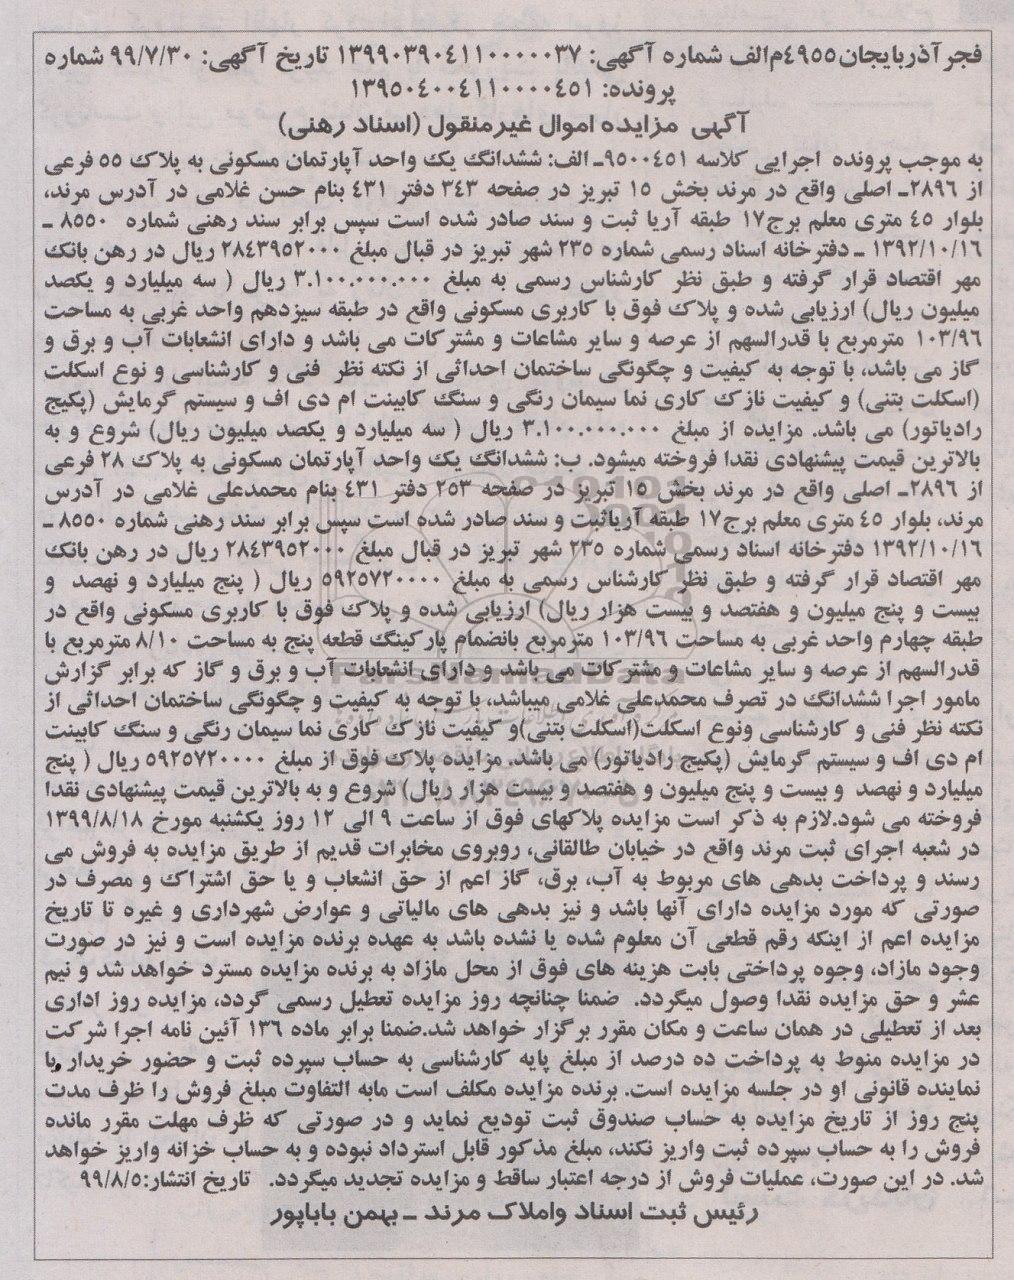 فجر آذربایجان٤٩٥٥م‌الف شماره آگهی: ١٣٩٩٠٣٩٠٤١١٠٠٠٠٠٣٧ تاریخ آگهی: ٩٩/٧/٣٠ شماره
پرونده: ١٣٩٥٠٤٠٠٤١١٠٠٠٠٤٥١
آگهی مزایده اموال غیرمنقول (اسناد رهنی)
به موجب پرونده اجرایی کلاسه ٩٥٠٠٤٥١ـ الف: ششدانگ یک واحد آپارتمان مسکونی به پلاک ٥٥ فرعی
از ٢٨٩٦ـ اصلی واقع در مرند بخش ١٥ تبریز در صفحه ٣٤٣ دفتر ٤٣١ بنام حسن غلامی در آدرس مرند،
بلوار ٤٥ متری معلم برج١٧ طبقه آریا ثبت و سند صادر شده است سپس برابر سند رهنی شماره ٨٥٥٠ ـ
١٣٩٢/١٠/١٦ ـ دفترخانه اسناد رسمی شماره ٢٣٥ شهر تبریز در قبال مبلغ ٢٨٤٣٩٥٢٠٠٠ ریال در رهن بانک
مهر اقتصاد قرار گرفته و طبق نظر کارشناس رسمی به مبلغ ٣.١٠٠.٠٠٠.٠٠٠ ریال ( سه میلیارد و یکصد
میلیون ریال) ارزیابی شده و پلاک فوق با کاربری مسکونی واقع در طبقه سیزدهم واحد غربی به مساحت
١٠٣/٩٦ مترمربع با قدرالسهم از عرصه و سایر مشاعات و مشترکات می باشد و دارای انشعابات آب و برق و
گاز می باشد، با توجه به کیفیت و چگونگی ساختمان احداثی از نکته نظر فنی و کارشناسی و نوع اسکلت
(اسکلت بتنی) و کیفیت نازک کاری نما سیمان رنگی و سنگ کابینت ام دی اف و سیستم گرمایش (پکیج
رادیاتور) می باشد. مزایده از مبلغ ٣.١٠٠.٠٠٠.٠٠٠ ریال ( سه میلیارد و یکصد میلیون ریال) شروع و به
بالاترین قیمت پیشنهادی نقدا فروخته میشود. ب: ششدانگ یک واحد آپارتمان مسکونی به پلاک ٢٨ فرعی
از ٢٨٩٦ـ اصلی واقع در مرند بخش ١٥ تبریز در صفحه ٢٥٣ دفتر ٤٣١ بنام محمدعلی غلامی در آدرس
مرند، بلوار ٤٥ متری معلم برج١٧ طبقه آریاثبت و سند صادر شده است سپس برابر سند رهنی شماره ٨٥٥٠ ـ
١٣٩٢/١٠/١٦ دفترخانه اسناد رسمی شماره ٢٣٥ شهر تبریز در قبال مبلغ ٢٨٤٣٩٥٢٠٠٠ ریال در رهن بانک
مهر اقتصاد قرار گرفته و طبق نظر کارشناس رسمی به مبلغ ٥٩٢٥٧٢٠٠٠٠ ریال ( پنج میلیارد و نهصد و
بیست و پنج میلیون و هفتصد و بیست هزار ریال) ارزیابی شده و پلاک فوق با کاربری مسکونی واقع در
طبقه چهارم واحد غربی به مساحت ١٠٣/٩٦ مترمربع بانضمام پارکینگ قطعه پنج به مساحت ٨/١٠ مترمربع با
قدرالسهم از عرصه و سایر مشاعات و مشترکات می باشد و دارای انشعابات آب و برق و گاز که برابر گزارش
مامور اجرا ششدانگ در تصرف محمدعلی غلامی میباشد، با توجه به کیفیت و چگونگی ساختمان احداثی از
نکته نظر فنی و کارشناسی ونوع اسکلت(اسکلت بتنی)و کیفیت نازک کاری نما سیمان رنگی و سنگ کابینت
ام دی اف و سیستم گرمایش (پکیج رادیاتور) می باشد. مزایده پلاک فوق از مبلغ ٥٩٢٥٧٢٠٠٠٠ ریال ( پنج
میلیارد و نهصد و بیست و پنج میلیون و هفتصد و بیست هزار ریال) شروع و به بالاترین قیمت پیشنهادی نقدا
فروخته می شود.لازم به ذکر است مزایده پلاکهای فوق از ساعت ٩ الی ١٢ روز یکشنبه مورخ ١٣٩٩/٨/١٨
در شعبه اجرای ثبت مرند واقع در خیابان طالقانی، روبروی مخابرات قدیم از طریق مزایده به فروش می
رسند و پرداخت بدهی های مربوط به آب، برق، گاز اعم از حق انشعاب و یا حق اشتراک و مصرف در
صورتی که مورد مزایده دارای آنها باشد و نیز بدهی های مالیاتی و عوارض شهرداری و غیره تا تاریخ
مزایده اعم از اینکه رقم قطعی آن معلوم شده یا نشده باشد به عهده برنده مزایده است و نیز در صورت
وجود مازاد، وجوه پرداختی بابت هزینه های فوق از محل مازاد به برنده مزایده مسترد خواهد شد و نیم
عشر و حق مزایده نقدا وصول میگردد. ضمنا چنانچه روز مزایده تعطیل رسمی گردد، مزایده روز اداری
بعد از تعطیلی در همان ساعت و مکان مقرر برگزار خواهد شد.ضمنا برابر ماده ١٣٦ آئین نامه اجرا شرکت
در مزایده منوط به پرداخت ده درصد از مبلغ پایه کارشناسی به حساب سپرده ثبت و حضور خریدار یا
نماینده قانونی او در جلسه مزایده است. برنده مزایده مکلف است مابه التفاوت مبلغ فروش را ظرف مدت
پنج روز از تاریخ مزایده به حساب صندوق ثبت تودیع نماید و در صورتی که ظرف مهلت مقرر مانده
فروش را به حساب سپرده ثبت واریز نکند، مبلغ مذکور قابل استرداد نبوده و به حساب خزانه واریز خواهد
شد. در این صورت، عملیات فروش از درجه اعتبار ساقط و مزایده تجدید میگردد. تاریخ انتشار:٩٩/٨/٥
رئیس ثبت اسناد واملاک مرند ـ بهمن باباپور